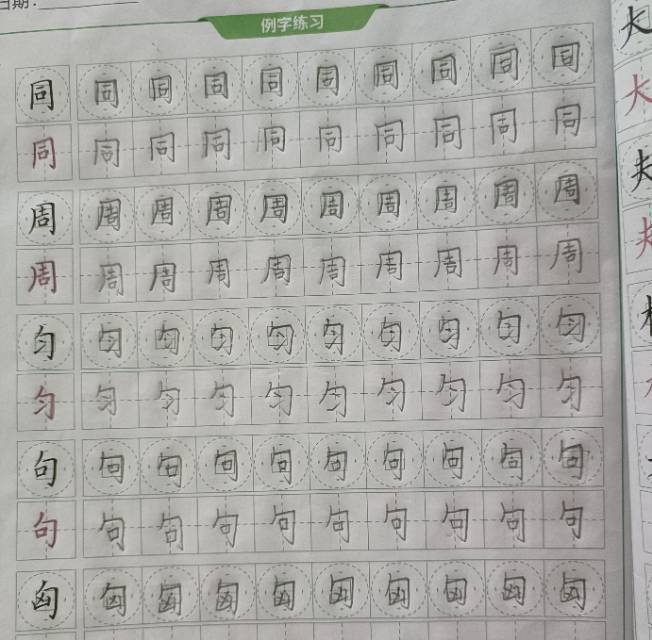 日期:
例字练习
同 同 同 同 同 同 同 同 同 同
同 同 同 同 同 同 同 同 同 同
周 周 周 周 周 周 周 周 周 周
周 周 周 周 周 周 周 周 周 周
匀 匀 匀 匀 匀 匀 匀 匀 匀 匀
匀 匀 匀 匀 匀 匀 匀 匀 匀 匀
句 句 句 句 句 句 句 句 句 句
句 句 句 句 句 句 句 句 句 句
匈 匈 匈 匈 匈 匈 匈 匈 匈 匈